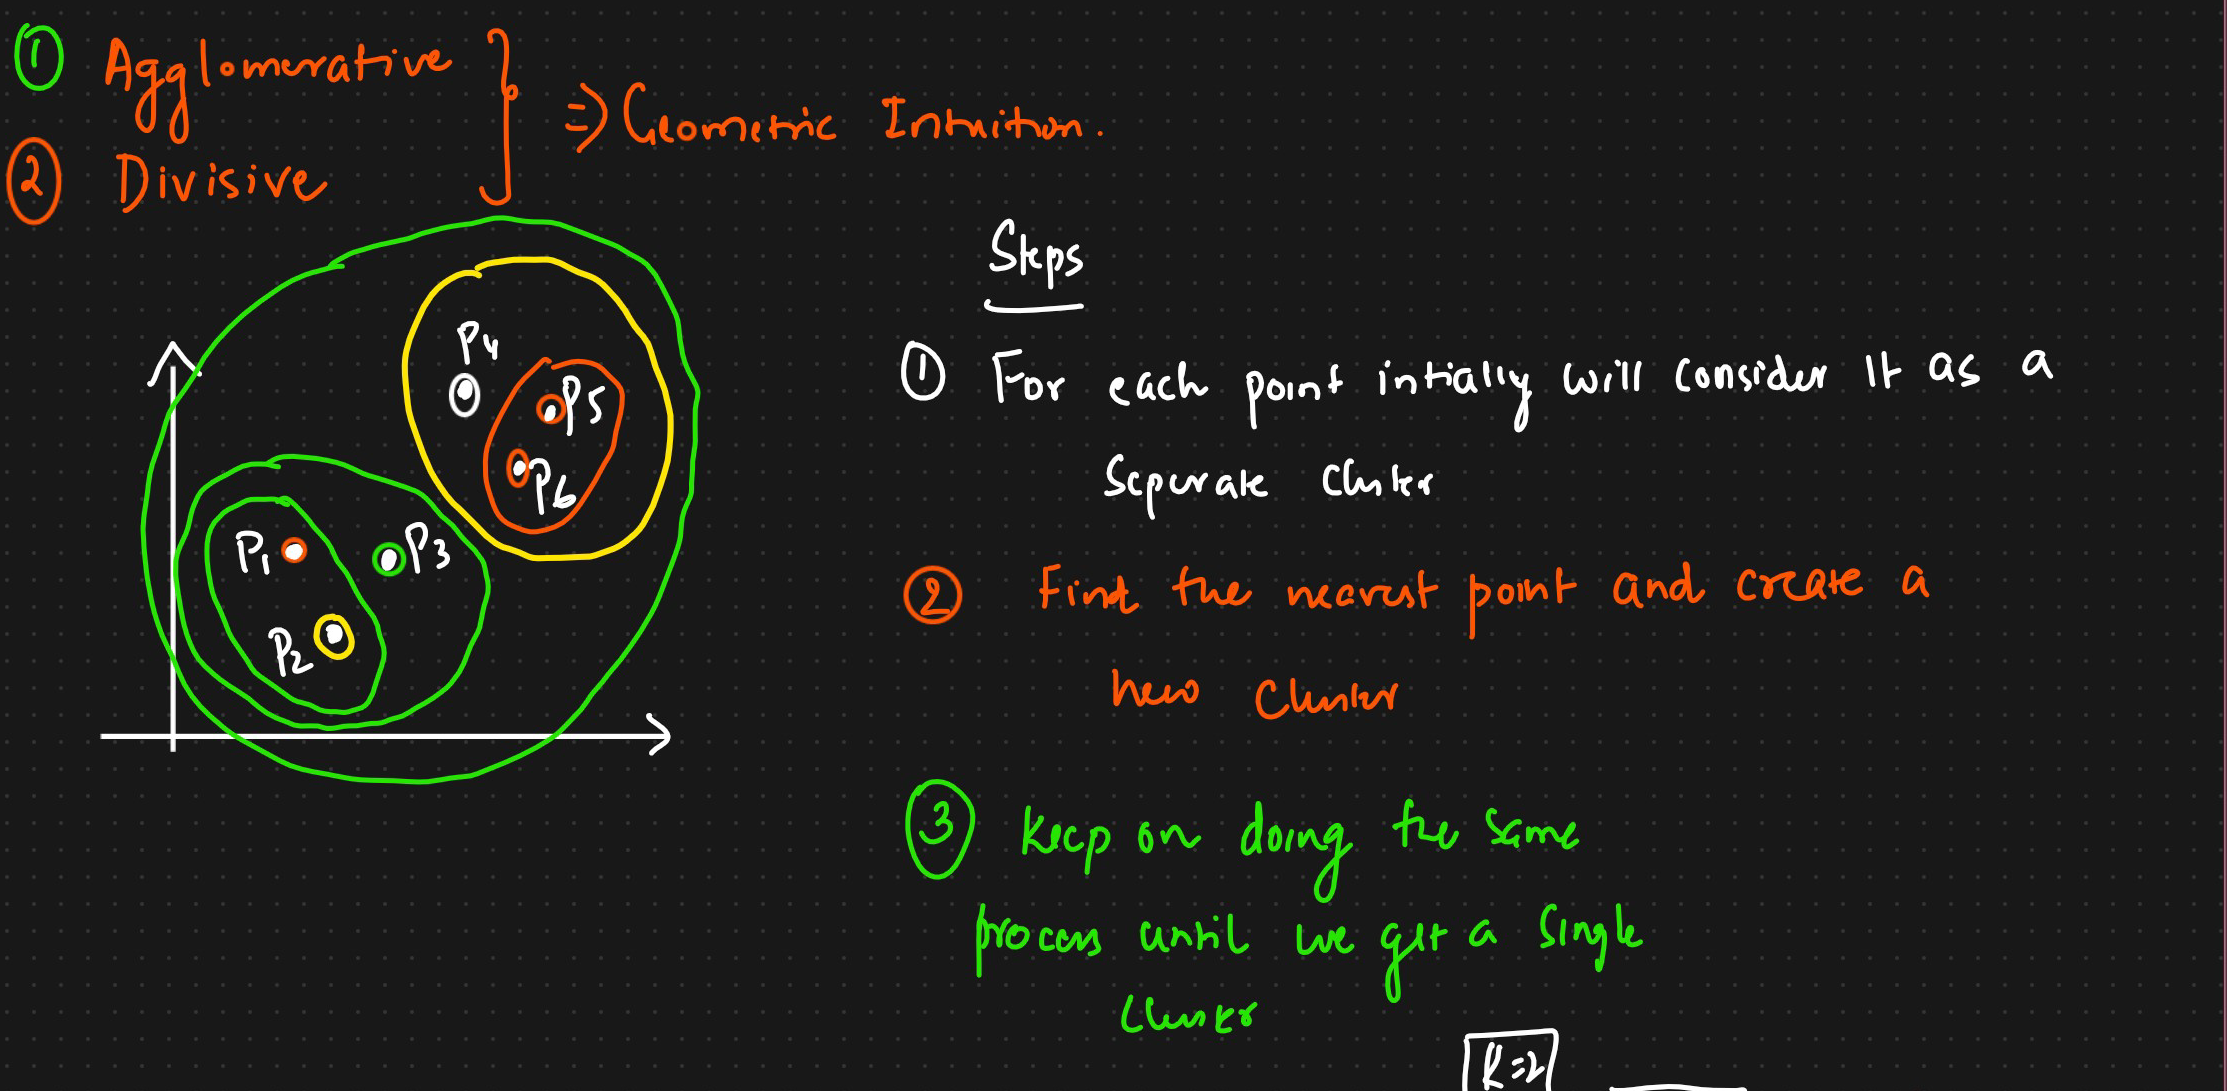 1 Agglomerative
2 Divisive
⇒ Geometric Intuition.
P4
P5
P6
P1
P3
P2
Steps
1 For each point intially will consider It as a
Seperate Cluster
2 Find the nearest point and create a
new Cluster
3 Keep on doing the same
process until we get a single
Cluster
K=2